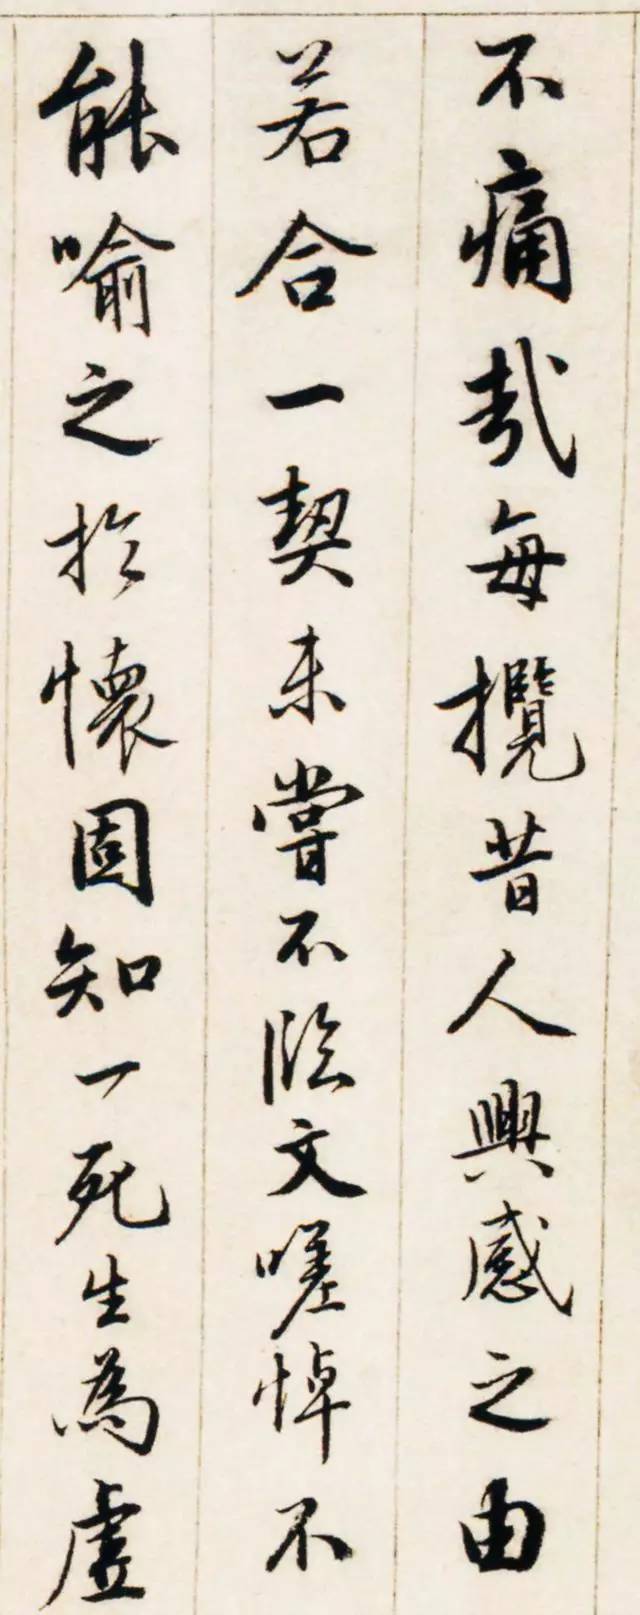 不痛哉每攬昔人興感之由
若合一契未嘗不臨文嗟悼不
能喻之於懷固知一死生為虛